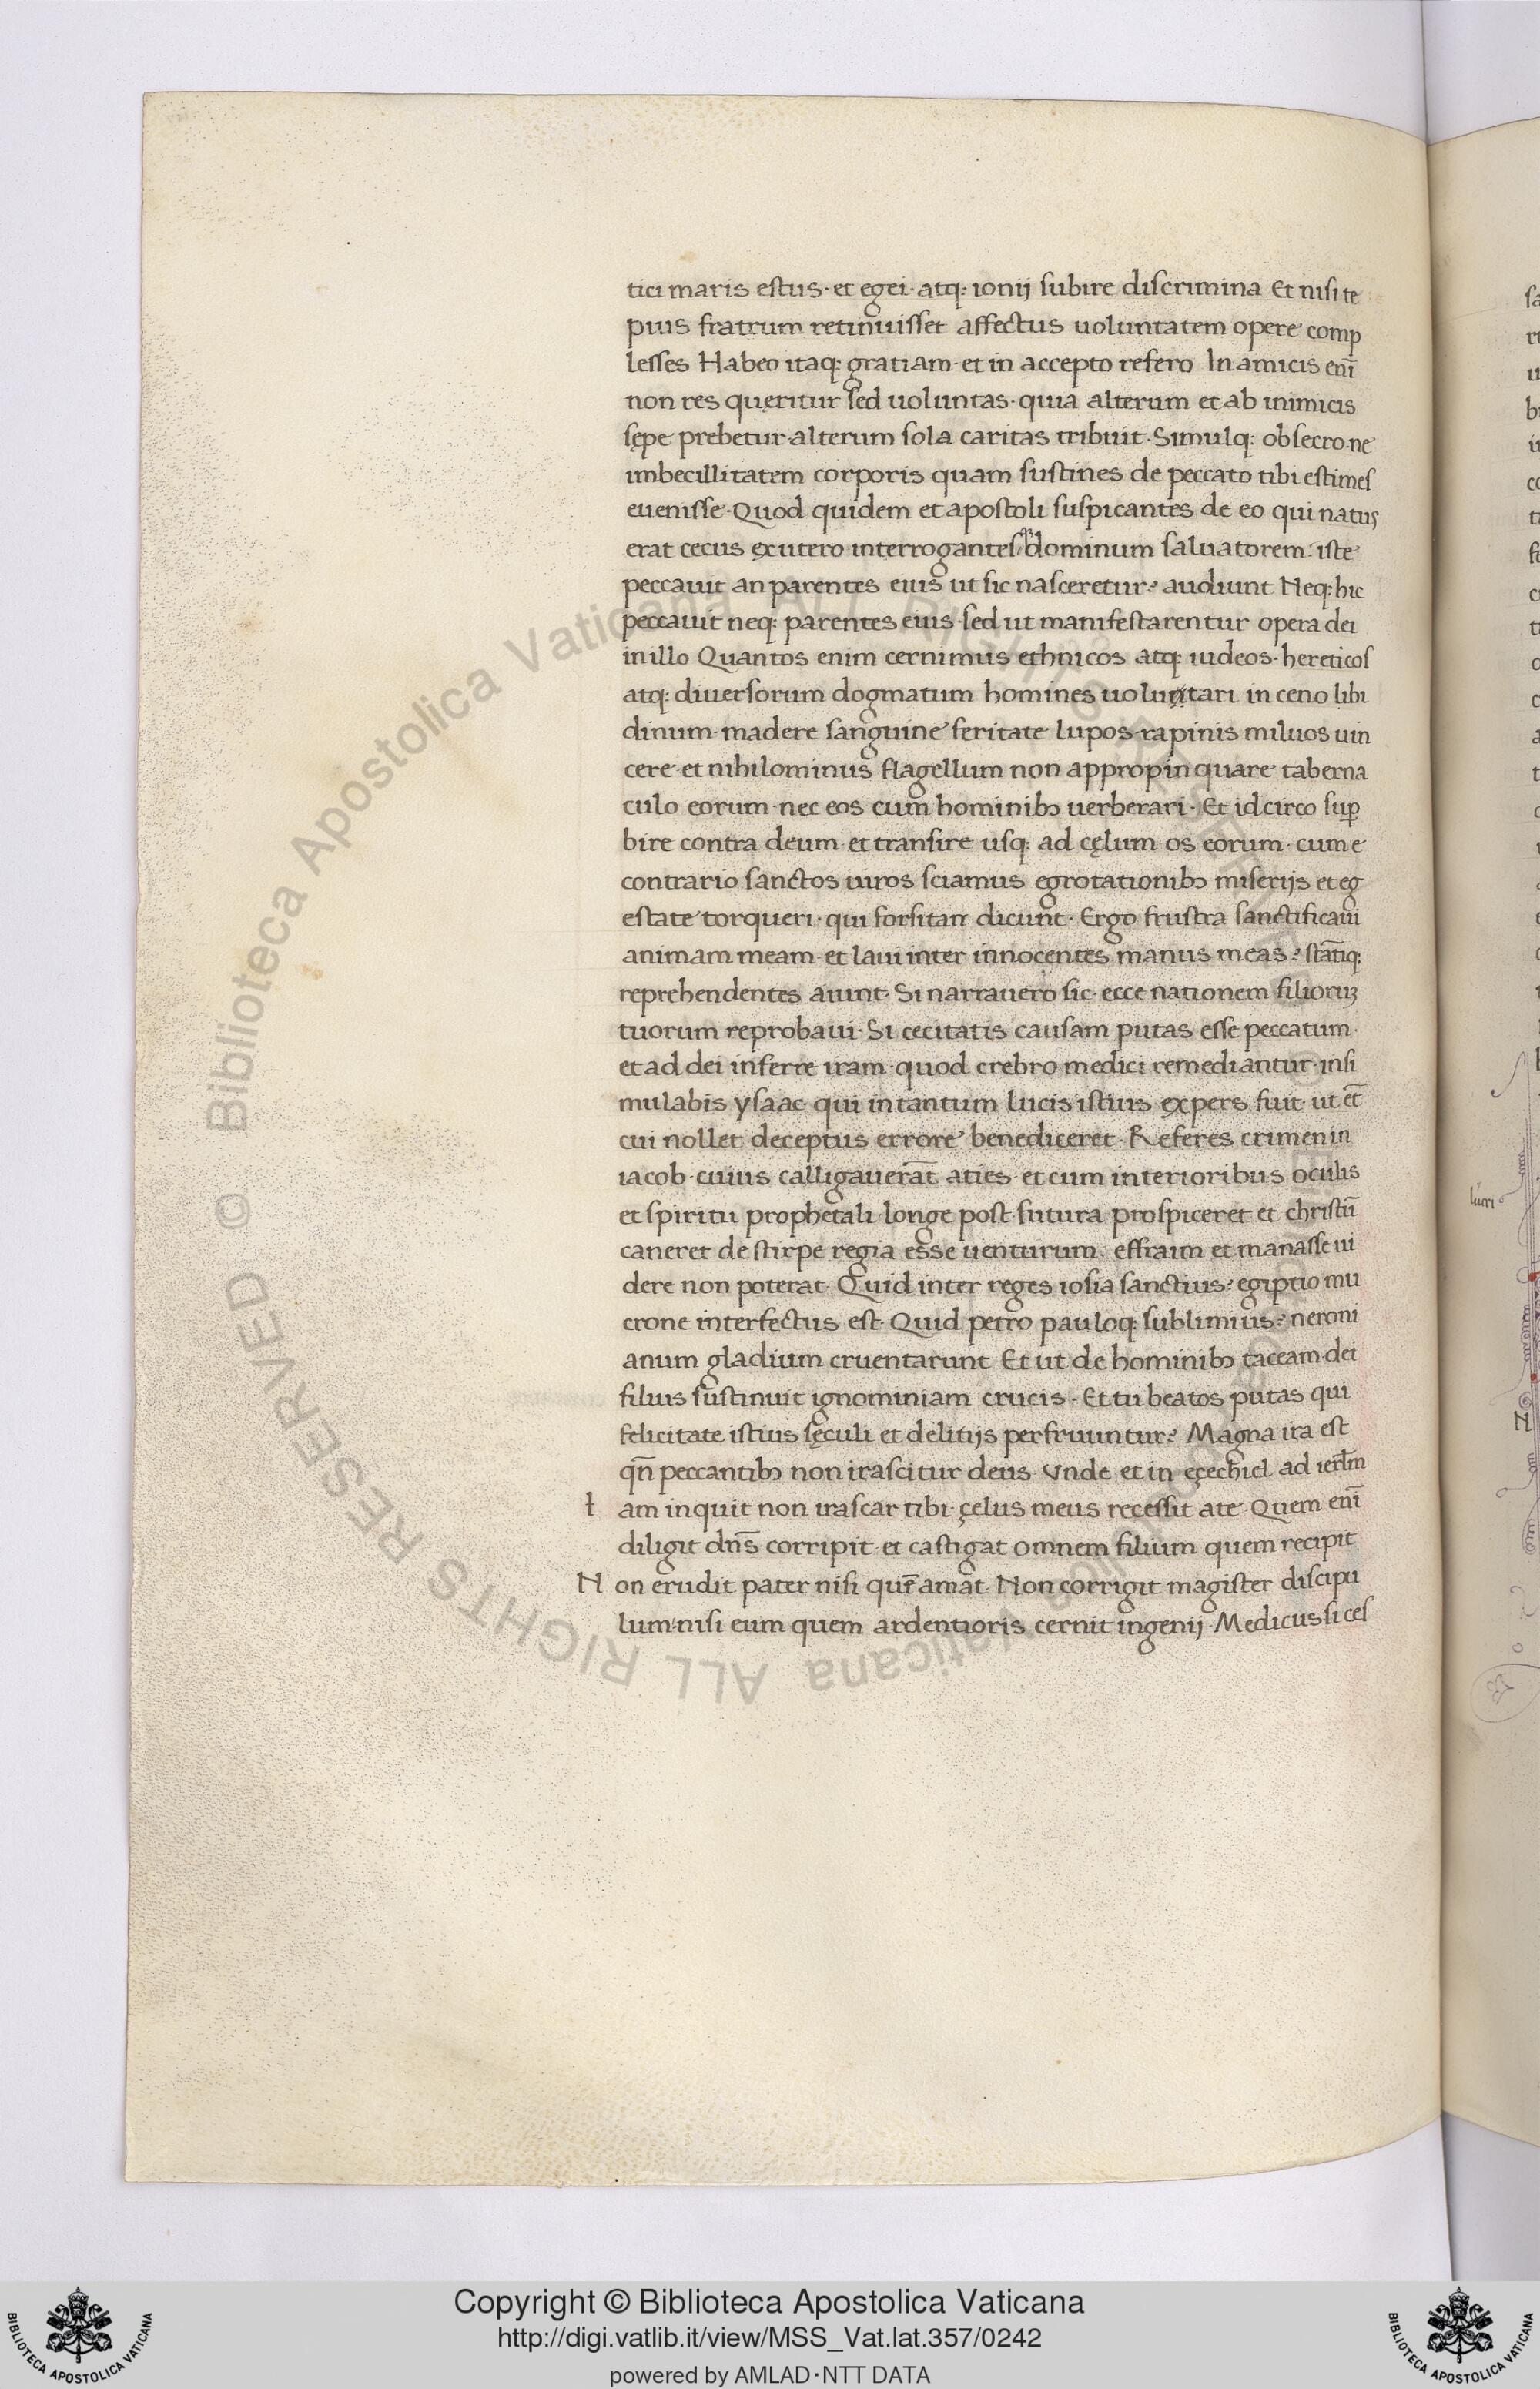 tici maris estus· et egei· atq: ionij subire discrimina Et nisi te
pius fratrum retinuisset affectus uoluntatem opere comp
lesses Habeo itaq: gratiam· et in accepto refero In amicis eni͞
non res queritur sed uoluntas· quia alterum et ab inimicis
sępe prebetur· alterum sola caritas tribuit· Simulq: obsecro· ne
imbecillitatem corporis quam sustines de peccato tibi estimes
euenisse· Quod quidem et apostoli suspicantes de eo qui natus
erat cecus ex utero interrogantes dominum saluatorem: iste
peccauit an parentes eius ut sic nasceretur? audiunt Neq: hic
peccauit neq: parentes eius· sed ut manifestarentur opera dei
in illo Quantos enim cernimus ethnicos atq: iudeos· hereticos
atq: diuersorum dogmatum homines uoluntari in ceno libi
dinum· madere sanguine feritate lupos· rapinis miluos uin
cere et nihilominus flagellum non appropinquare taberna
culo eorum· nec eos cum hominibꝫ uerberari· Et idcirco suꝑ
bire contra deum· et transire usq: ad cęlum os eorum· cum e
contrario sanctos uiros sciamus egrotationibꝫ miserijs et eg
estate torqueri· qui forsitan dicunt· Ergo frustra sanctificaui
animam meam· et laui inter innocentes manus meas? stati͞q:
reprehendentes aiunt· Si narrauero sic· ecce nationem filioruꝫ
tuorum reprobaui· Si cecitatis causam putas esse peccatum·
et ad dei inferre iram· quod crebro medici remediantur· insi
mulabis ysaac· qui in tantum lucis istius expers fuit· ut et͞
cui nollet deceptus errore benediceret· Referes crimen in
iacob· cuius calligauera͞t aties· et cum interioribus oculis
et spiritu prophetali longe post futura prospiceret et christu͞
caneret de stirpe regia esse uenturum· effraim et manasse ui
dere non poterat· Quid inter reges iosia sanctius? egiptio mu
crone interfectus est· Quid petro pauloq: sublimius? neroni
anum gladium cruentarunt Et ut de hominibꝫ taceam· dei
filius sustinuit ignominiam crucis· Et tu beatos putas qui
felicitate istius sęculi et delitijs perfruuntur? Magna ira est
qn͞ peccantibꝫ non irascitur deus· Vnde et in eçechiel ad ierl͞m
I am inquit non irascar tibi· çelus meus recessit a te· Quem eni͞
diligit dn͞s corripit· et castigat omnem filium quem recipit
N on erudit pater nisi que͞ amat· Non corrigit magister discipu
lum· nisi eum quem ardentioris cernit ingenij· Medicus si ces
© Biblioteca Apostolica Vaticana ALL RIGHTS RESERVED
Copyright © Biblioteca Apostolica Vaticana
http://digi.vatlib.it/view/MSS_Vat.lat.357/0242
powered by AMLAD·NTT DATA
BIBLIOTECA APOSTOLICA VATICANA
BIBLIOTECA APOSTOLICA VATICANA